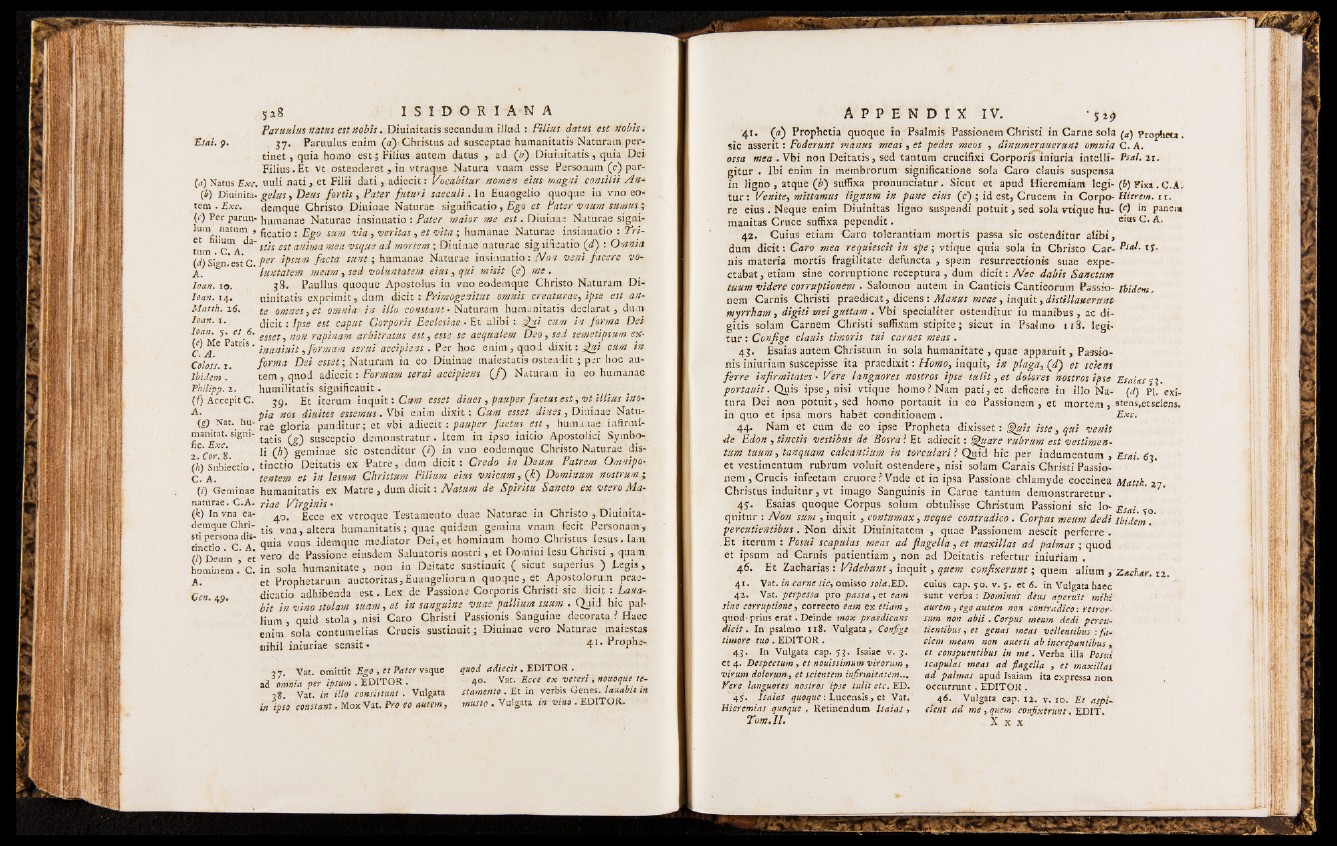 528 ISIDORIANA
Paruulus natus est nobis. Diuinitatis secundum illud : Filius datus est nobis.
Esai. 9.
37. Paruulus enim (a) Christus ad susceptae humanitatis Naturam per-
tinet, quia homo est; Filius autem datus, ad (b) Diuinitatis, quia Dei
Filius. Et vt ostenderet, in vtraque Natura vnam esse Personam (c) par-
uuli nati, et Filii dati, adiecit : Vocabitur nomen eius magni consilii An-
gelus, Deus fortis, Pater futuri saeculi. In Euangelio quoque in vno eo-
demque Christo Diuinae Naturae significatio, Ego et Pater vnum sumus;
humanae Naturae insinuatio : Pater maior me est. Diuinae Naturae signi-
ficatio : Ego sum via, veritas, et vita; humanae Naturae insinuatio : Tri-
stis est anima mea vsque ad mortem; Diuinae naturae significatio (d) : Omnia
per ipsum facta sunt; humanae Naturae insinuatio : Non veni facere vo-
luntatem meam, sed voluntatem eius, qui misit (e) me.
38. Paullus quoque Apostolus in vno eodemque Christo Naturam Di-
uinitatis exprimit, dum dicit : Primogenitus omnis creaturae, ipse est an-
te omnes, et omnia in illo constant. Naturam humanitatis declarat, dum
dicit : Ipse est caput Corporis Ecclesiae. Et alibi : Qui cum in forma Dei
esset, non rapinam arbitratus est, esse se aequalem Deo, sed semetipsum ex-
inaniuit, formam serui accipiens. Per hoc enim, quod dixit : Qui cum in
forma Dei esset; Naturam in eo Diuinae maiestatis ostendit; per hoc au-
tem, quod adiecit : Formam serui accipiens (f) Naturam in eo humanae
humilitatis significauit.
39. Et iterum inquit : Cum esset diues, pauper factus est, vt illius ino-
pia nos diuites essemus. Vbi enim dixit : Cum esset diues, Diuinae Natu-
rae gloria panditur; et vbi adiecit : pauper factus est, humanae infirmi-
tatis (g) susceptio demonstratur. Item in ipso initio Apostolici Symbo-
li (h) geminae sic ostenditur (i) in vno eodemque Christo Naturae dis-
tinctio Deitatis ex Patre, dum dicit : Credo in Deum Patrem Omnipo-
tentem et in Iesum Christum Filium eius vnicum, (k) Dominum nostrum;
humanitatis ex Matre, dum dicit : Natum de Spiritu Sancto ex vtero Ma-
riae Virginis.
40. Ecce ex vtroque Testamento duae Naturae in Christo, Diuinita-
tis vna, altera humanitatis; quae quidem gemina vnam fecit Personam,
quia vnus idemque mediator Dei, et hominum homo Christus Iesus. Iam
vero de Passione eiusdem Saluatoris nostri, et Domini Iesu Christi, quam
in sola humanitate, non in Deitate sustinuit ( sicut superius ) Legis,
et Prophetarum auctoritas, Euangeliorum quoque, et Apostolorum prae-
dicatio adhibenda est. Lex de Passione Corporis Christi sic dicit : Laua-
bit in vino stolam suam, et in sanguine vuae pallium suum. Quid hic pal-
lium, quid stola, nisi Caro Christi Passionis Sanguine decorata? Haec
enim sola contumelias Crucis sustinuit; Diuinae vero Naturae maiestas
nihil iniuriae sensit.
41. Prophe-
(a) Natus Exc.
(b) Diuinita-
tem. Exc.
(c) Per paruu-
lum natum,
et filium da-
tum. C. A.
(d) Sign. est C.
A.
Ioan. 10.
Ioan. 14.
Matth. 26.
Ioan. 1.
Ioan. 5. et 6.
(e) Me Patris.
C. A.
Coloss. 1.
Ibidem.
Philipp. 2.
(f) Accepit C.
A.
(g) Nat. hu-
manitat. signi-
fic. Exc.
2. Cor. 8.
(h) Subiectio.
C. A.
(i) Geminae
naturae. C.A.
(k) In vna ea-
demque Chri-
sti persona dis-
tinctio. C. A.
(l) Deum, et
hominem. C.
A.
Gen. 49.
37. Vat. omittit Ego, et Pater vsque
ad omnia per ipsum. EDITOR.
38. Vat. in illo consistunt. Vulgata
in ipso constant. Mox Vat. Pro eo autem,
quod adiecit. EDITOR.
40. Vat. Ecce ex veteri, nouoque te-
stamento. Et in verbis Genes. lauabit in
musto. Vulgata in vino. EDITOR.
APPENDIX IV. 529
41. (a) Prophetia quoque in Psalmis Passionem Christi in Carne sola
sic asserit : Foderunt manus meas, et pedes meos, dinumerauerunt omnia
ossa mea. Vbi non Deitatis, sed tantum crucifixi Corporis iniuria intelli-
gitur. Ibi enim in membrorum significatione sola Caro clauis suspensa
in ligno, atque (b) suffixa pronunciatur. Sicut et apud Hieremiam legi-
tur : Venite, mittamus lignum in pane eius (c); id est, Crucem in Corpo-
re eius. Neque enim Diuinitas ligno suspendi potuit, sed sola vtique hu-
manitas Cruce suffixa pependit.
42. Cuius etiam Caro tolerantiam mortis passa sic ostenditur alibi,
dum dicit : Caro mea requiescit in spe; vtique quia sola in Christo Car-
nis materia mortis fragilitate defuncta, spem resurrectionis suae expe-
ctabat, etiam sine corruptione receptura, dum dicit : Nec dabis Sanctum
tuum videre corruptionem. Salomon autem in Canticis Canticorum Passio-
nem Carnis Christi praedicat, dicens : Manus meae, inquit, distillauerunt
myrrham, digiti mei guttam. Vbi specialiter ostenditur in manibus, ac di-
gitis solam Carnem Christi suffixam stipite; sicut in Psalmo 118. legi-
tur : Confige clauis timoris tui carnes meas.
43. Esaias autem Christum in sola humanitate, quae apparuit, Passio-
nis iniuriam suscepisse ita praedixit : Homo, inquit, in plaga, (d) et sciens
ferre infirmitates. Vere languores nostros ipse tulit, et dolores nostros ipse
portauit. Quis ipse, nisi vtique homo? Nam pati, et deficere in illo Na-
tura Dei non potuit, sed homo portauit in eo Passionem, et mortem,
in quo et ipsa mors habet conditionem.
44. Nam et cum de eo ipse Propheta dixisset : Quis iste, qui venit
de Edon, tinctis vestibus de Bosra? Et adiecit : Quare rubrum est vestimen-
tum tuum, tanquam calcantium in torculari? Quid hic per indumentum,
et vestimentum rubrum voluit ostendere, nisi solam Carnis Christi Passio-
nem, Crucis infectam cruore? Vnde et in ipsa Passione chlamyde coccinea
Christus induitur, vt imago Sanguinis in Carne tantum demonstraretur.
45. Esaias quoque Corpus solum obtulisse Christum Passioni sic lo-
quitur : Non sum, inquit, contumax, neque contradico. Corpus meum dedi
percutientibus. Non dixit Diuinitatem, quae Passionem nescit perferre.
Et iterum : Posui scapulas meas ad flagella, et maxillas ad palmas; quod
et ipsum ad Carnis patientiam, non ad Deitatis refertur iniuriam.
46. Et Zacharias : Videbunt, inquit, quem confixerunt; quem alium,
(a) Propheta.
C. A.
Psal. 21.
(b) Fixa. C.A.
Hierem. 11.
(c) in panem
eius C. A.
Psal. 15.
Ibidem.
Esaias 53.
(d) Pl. exi-
stens, et sciens.
Exc.
Esai. 63.
Matth. 27.
Esai. 50.
Ibidem.
Zachar. 12.
41. Vat. in carne sic, omisso sola. ED.
42. Vat. perpessa pro passa, et eam
sine corruptione, correcto eam ex etiam,
quod prius erat. Deinde mox praedicans
dicit. In psalmo 118. Vulgata, Confige
timore tuo. EDITOR.
43. In Vulgata cap. 53. Isaiae v. 3.
et 4. Despectum, et nouissimum virorum,
virum dolorum, et scientem infirmitatem...
Vere languores nostros ipse tulit etc. ED.
45. Isaias quoque : Lucensis, et Vat.
Hieremias quoque. Retinendum Isaias,
cuius cap. 50. v. 5. et 6. in Vulgata haec
sunt verba : Dominus deus aperuit mihi
aurem, ego autem non contradico : retror-
sum non abii. Corpus meum dedi percu-
tientibus, et genas meas vellentibus : fa-
ciem meam non auerti ab increpantibus,
et conspuentibus in me. Verba illa Posui
scapulas meas ad flagella, et maxillas
ad palmas apud Isaiam ita expressa non
occurrunt. EDITOR.
46. Vulgata cap. 12. v. 10. Et aspi-
cient ad me, quem confixerunt. EDIT.
Tom. II. X x x